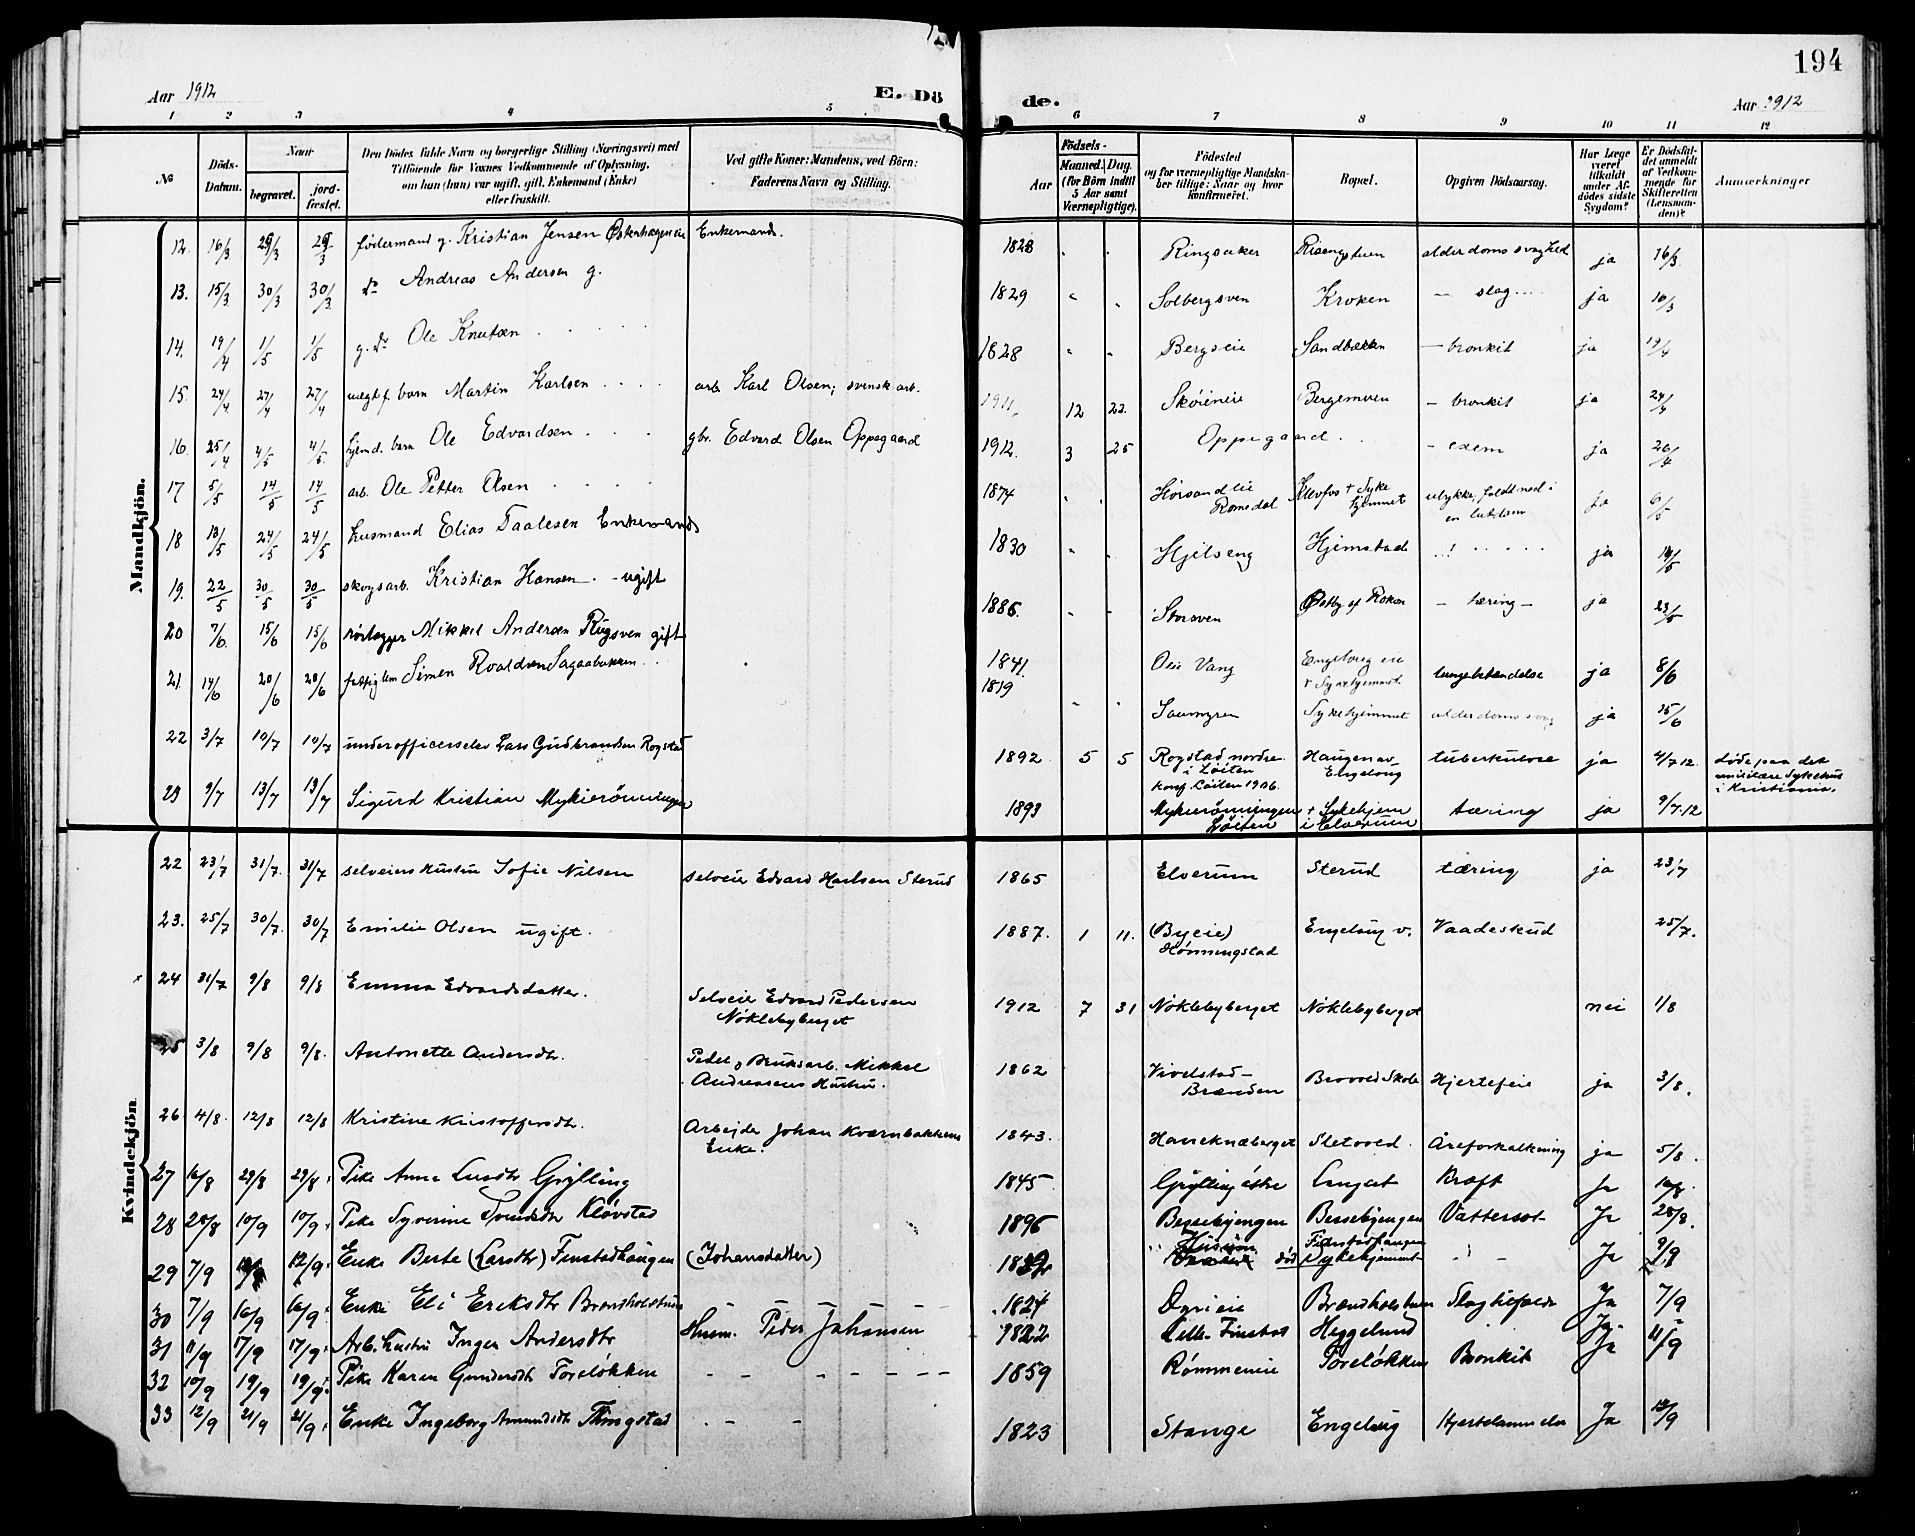 194
Aar 1912 E. Dö de. Aar 1912
1 2 3 4 5 6 7 8 9 10 11 12
№
Döds-Datum.
Naar
begravet.
jord-fæstet.
Den Dödes fulde Navn og borgerlige Stilling (Næringsvei) med Tilföiende for Voxnes Vedkommende af Oplysning, om han (hun) var ugift, gift, Enkemand (Enke) eller fraskilt.
Ved gifte Koner: Mandens, ved Börn: Faderens Navn og Stilling.
Födsels-
Aar
Maaned. Dag.
(for Börn indtil 5 Aar samt Værnepligtige).
Födested
og for værnepligtige Mandskaber tillige: Naar og hvor konfirmeret.
Bopæl.
Opgiven Dödsaarsag.
Har Læge været tilkaldt under Afdödes sidste Sygdom?
Er Dödsfaldet anmeldt af Vedkommende for Skifteretten (Lensmanden)?
Anmærkninger
Mandkjön.
12. 16/3 29/3 29/3 födermand g. Kristian Jensen Østenhageneie Enkemand. 1828 Ringsaker Risengstuen alderdomssvaghed ja 16/3
13. 15/3 30/3 30/3 do Andreas Andersen g. 1829 Solbergsven Kroken — slag ja 16/3
14. 19/4 1/5 1/5 g. do Ole Knutsen 1828 Bergseie Sandbækken — bronkit ja 19/4
15. 24/4 27/4 27/4 uægtf. barn Martin Karlsen arb. Karl Olsen; svensk arb. 1911 12 22. Skøieneie Bergemoen — bronkit ja 24/4
16. 25/4 4/5 4/5 hjemd. barn Ole Edvardsen gbr. Edvard Olsen Oppegaard 1912. 3 25 Oppegaard — exem ja 26/4
17 5/5 14/5 14/5 arb. Ole Petter Olsen 1874 Romsdal Klevfos + Sykehjemmet ulykke, faldt ned i en lutdam ja 6/5
18 18/5 24/5 24/5 husmand Elias Taalesen Enkemand 1830 Hjelseng Hjemstad ja
19. 22/5 30/5 30/5 skogsarb. Kristian Hansen. - ugift 1886. Storsven Østby af Roken — tæring — ja 23/5
20 7/6. 15/6 15/6 rörlegger Mikkel Andersen Rugsven gift 1841. Oeie Vang Engelaug eie + Sykehjemmet lungebetændelse ja 8/6
21. 14/6 20/6 20/6 fattiglem Simen Roaldsen Sagaabakken 1819 Sykehjemmet alderdomssvag ja 15/6
22 3/7 10/7 10/7 underofficerselev Lars Gudbrandsen Rogstad 1892 5 5 Rogstad nordre i Løiten konf. Löiten 1906. Haugen av Engelaug tuberkulose ja 4/7 12 døde paa det militære Sykehus i Kristiania.
23 9/7 13/7 13/7 Sigurd Kristian Mykierönningen 1893 Mykierönningen Löiten + Sykehjem i Elverum tæring ja 9/7.12
Kvindekjön
22 23/7 31/7. 31/7 selveiers Hustru Sofie Nilsen selveier Edvard Karlsen Sterud 1865 Elverum Sterud tæring ja 23/7
23. 25/7 30/7. 30/7 Emilie Olsen ugift. 1887. 1 11. (Byeie) Hönningstad Engelaug v. Vaadeskud 25/7.
24 31/7 9/8 9/8 Emma Edvardsdatter. Selveier Edvard Pedersen Nöklebyberget 1912 7 31 Nöklebyberget Nöklebyberget nei 1/8
25 3/8 9/8 9/8. Antonette Andersdtr. Pedel og Bruksarb. Mikkel Andreassens Hustru. 1862 Vivelstad-Brænden Brovold Skole Hjertefeil ja 3/8.
26 4/8. 12/8 12/8 Kristine Kristoffersdtr. Arbeider Johan Kværnbakkens Enke. 1843. Haneknæberget Sletvold. Åreforkalkning ja 5/8.
27 16/8 29/8 29/8. Pike Anna Larsdtr Grylling 1845 Grylling østre Kræft Ja 16/8
28 28/8 10/9 10/9. Pike Syverine Svendsdtr Kløvstad 1896 Bessebjengen Bessebjengen Vattersot Ja 28/8.
29 7/9 12/9. Enke Berte (Larsdtr) Finstadhaugen (Johansdatter) död Finstadhaugen Sykehjemmet Ja 9/9
30 7/9 16/9 16/9. Enke Eli Eriksdtr Brændholstuen 1824 Brændholstuen Slagtilfælde Ja 7/9
31 11/9 17/9 17/9. Arb. Hustru Inger Andersdtr Husm. Peder Johansen 1822 Lille-Finstad Heggelund Ja 11/9
32 10/9 19/9 19/9. Pike Karen Gundersdtr Toreløkken 1859 Rømmeneie Toreløkken Bronkit Ja
33 12/9 21/9 21/9. Enke Ingeborg Amundsdtr Thingstad 1823 Stange Engelaug Hjertelammelse Ja 12/9